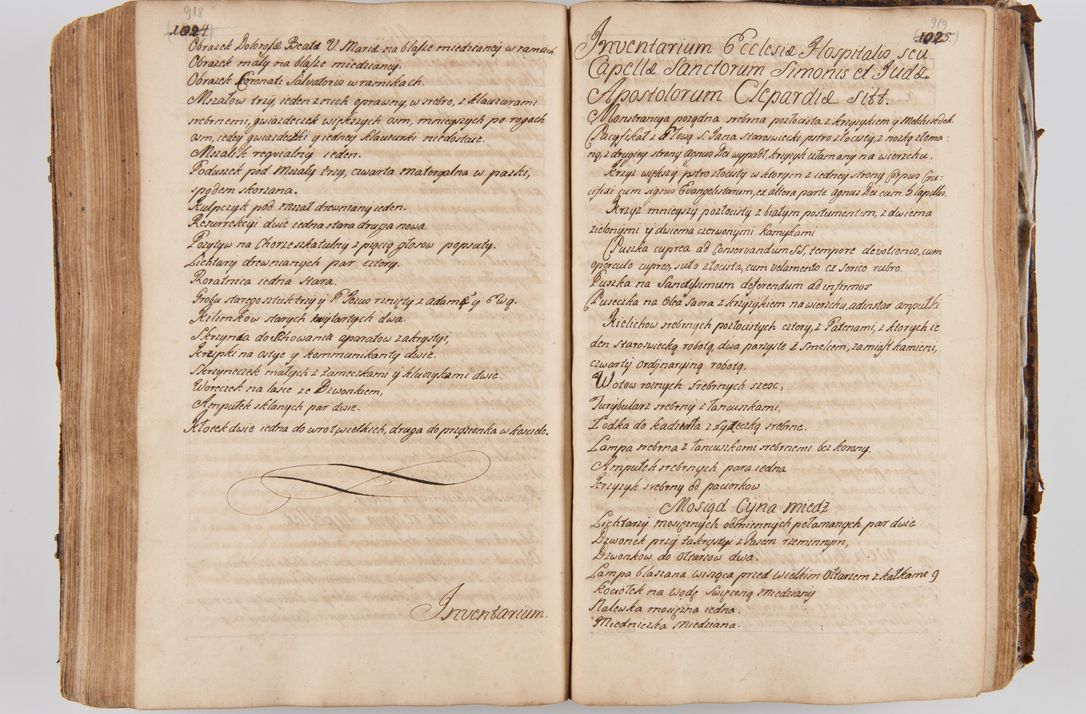 918
1024
Obrazek Dolorosæ Beatæ V Mariæ na blasze miedzianej w ramach
Obrazek mały na blasze miedzianej.
Obrazek Coronati Salvatoris w ramikach.
Mszałow trzy, ieden z nich oprawny, w srebro, z klauzurami
srebrnemi, gwiazdeczek większych osm, mnieyszych po rogach
osm, iedey gwiazdeczki y iedney klauzurki niedostaie.
Mszalik requialny ieden.
Poduszek pod Mszały trzy, czwarta materyalna w paski,
spodem skorzana.
Pulpczyk pod mszał drewniany ieden.
Resurrekcyi dwie iedna stara druga nowa.
Pozytyw na Chorze szkatulny z pięcią głosow popsuty.
Lichtarzy drewnianych par cztery.
Roratnica iedna stara.
Grobu starego sztuk trzy y P Jezus rznięty z adamą y Ewą.
Kilimkow starych wytartych dwa.
Skrzynia do Chowania aparatow zakrystyi,
Skrzynki na ostye y kommunikanty dwie.
Skrzyneczek małych z zameczkami y kluczykami dwie.
Woreczek na lasce ze Dzwonkiem,
Ampułek sklanych par dwie.
Kłotek dwie iedna do wrot wielkich, druga do przysionka w kosciele.
Inventarium.
919
1025
Inventarium Ecclesiæ Hospitalis, seu
Capellæ Sanctorum Simonis et Judæ
Apostolorum Clepardiæ sitt.
Monstrancya porządna srebrna pozłocista z krzyżykiem y Melchisedek
Pacyfikał z Głową S. Jana staroswiecki, pstro złocisty, z nożką złoma-
ną, z drugiey strony Agnus Dei wypadł, krzyżyk ułamany na wierzchu.
Krzyż większy pstrozłocisty w ktorym z iedney strony Corpus Cru-
cifixi cum signis Evangelistarum, ex altera parte Agnus Dei cum 5 lapillis.
Krzyż mnieyszy pozłocisty z białym postumentem, z dwiema
zielonymi y dwiema czerwonymi kamykami
Puszka cuprea ad Conservandum SS, tempore devotionis, cum
operculo cupreo, suto złocista, cum velamento ex serico rubro.
Puszka na Sanctissimum deferendum ad infirmos
Puszeczka na Oleu Sacra z krzyżykiem na wierzchu, ad instar ampulki
Kielichow srebrnych pozłocistych cztery, z Patenami, z ktorych ie
den Staroswiecką robotą, dwa parzyste z Smelcem, zamiast kamieni,
czwarty ordynaryiną robotą.
Wotow roznych srebrnych szesc,
Turybularz srebrny z łancuszkami,
Łodka do kadzidła z łyżeczką srebrne.
Lampa srebrna z łancuszkami srebrnemi bez korony.
Ampułek srebrnych para iedna
Krzyżyk srebrny od paciorkow
Mosiądz Cyna miedź
Lichtarzy mosiężnych odmiennych połamanych par dwie
Dzwonek przy Zakrystyi z Pasem rzeminnym,
Dzwonkow do Ołtarzow dwa.
Lampa blaszana wisząca przed wielkim Ołtarzem z kałkami 9
Kociołek na Wodę Swięconą miedziany
Nalewka mosiężna iedna.
Miedniczka miedziana.